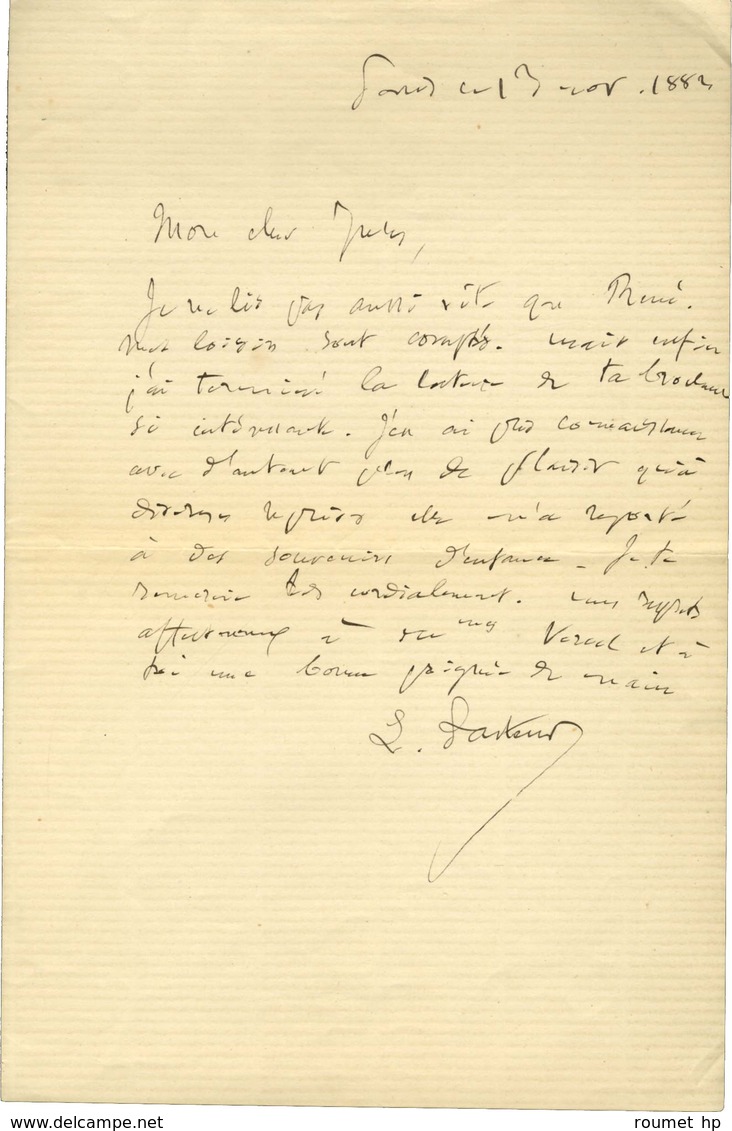 Paris ce 13 nov. 1882
Mon cher Jules,
Je ne lis pas aussi vite que René.
Mes loisirs sont comptés. Mais enfin
j'ai terminé la lecture de ta brochure
si intéressante. J'en ai pris connaissance
avec d'autant plus de plaisir qu'à
diverses reprises elle m'a reporté
à des souvenirs d'enfance. Je te
remercie très cordialement. Mes respects
affectueux à Mme Vercel et à
toi une bonne poignée de main
L. Pasteur
www.delcampe.net
roumet hp